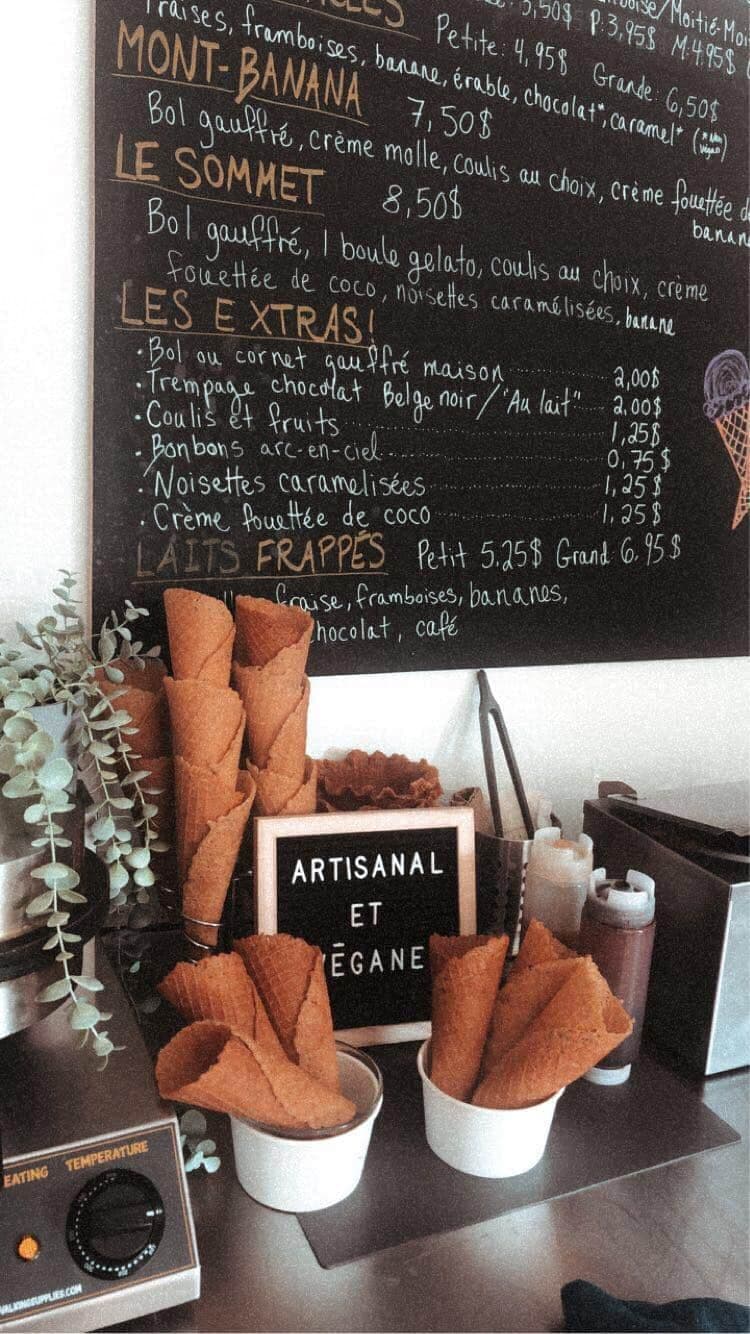 3,50$ P:3,95$ M:4,95$
Petite: 4,95$ Grande: 6,50$
fraises, framboises, banane, érable, chocolat*, caramel* (
MONT-BANANA 7,50$
Bol gauffré, crème molle, coulis au choix, crème fouettée d
banan
LE SOMMET 8,50$
Bol gauffré, 1 boule gelato, coulis au choix, crème
fouettée de coco, noisettes caramélisées, banane
LES EXTRAS!
• Bol ou cornet gauffré maison 2,00$
• Trempage chocolat Belge noir / "Au lait" 2,00$
• Coulis et fruits 1,25$
• Bonbons arc-en-ciel 0,75$
• Noisettes caramelisées 1,25$
• Crème fouettée de coco 1,25$
LAITS FRAPPÉS Petit 5.25$ Grand 6.95$
fraise, framboises, bananes,
hocolat, café
ARTISANAL
ET
ÉGANE
EATING TEMPERATURE